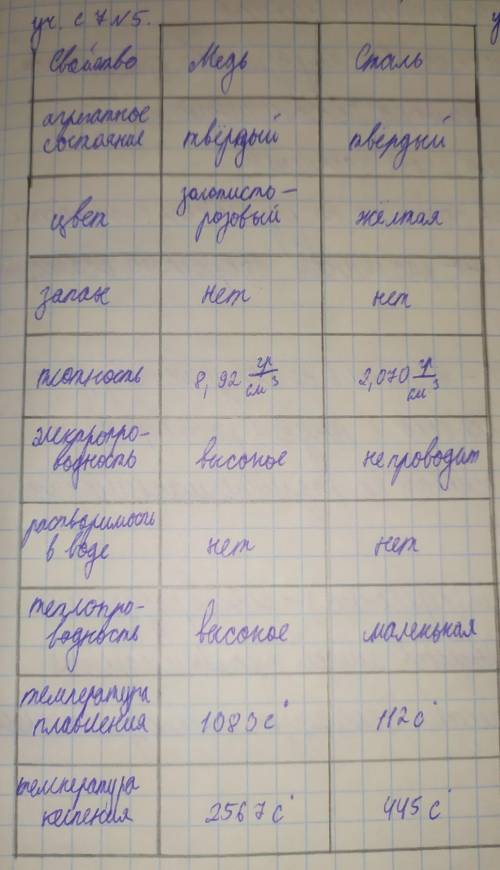 уч. с 7 №5. у
Свойство Медь Сталь
агрегатное
состояние твёрдый твёрдый
цвет золотисто-
розовый жёлтая
запах нет нет
плотность 8,92 гр/см³ 2,070 гр/см³
электропро-
водность высокое не проводит
растворимость
в воде нет нет
теплопро-
водность высокое маленькая
температура
плавления 1083 с° 112 с°
температура
кипения 2567 с° 445 с°